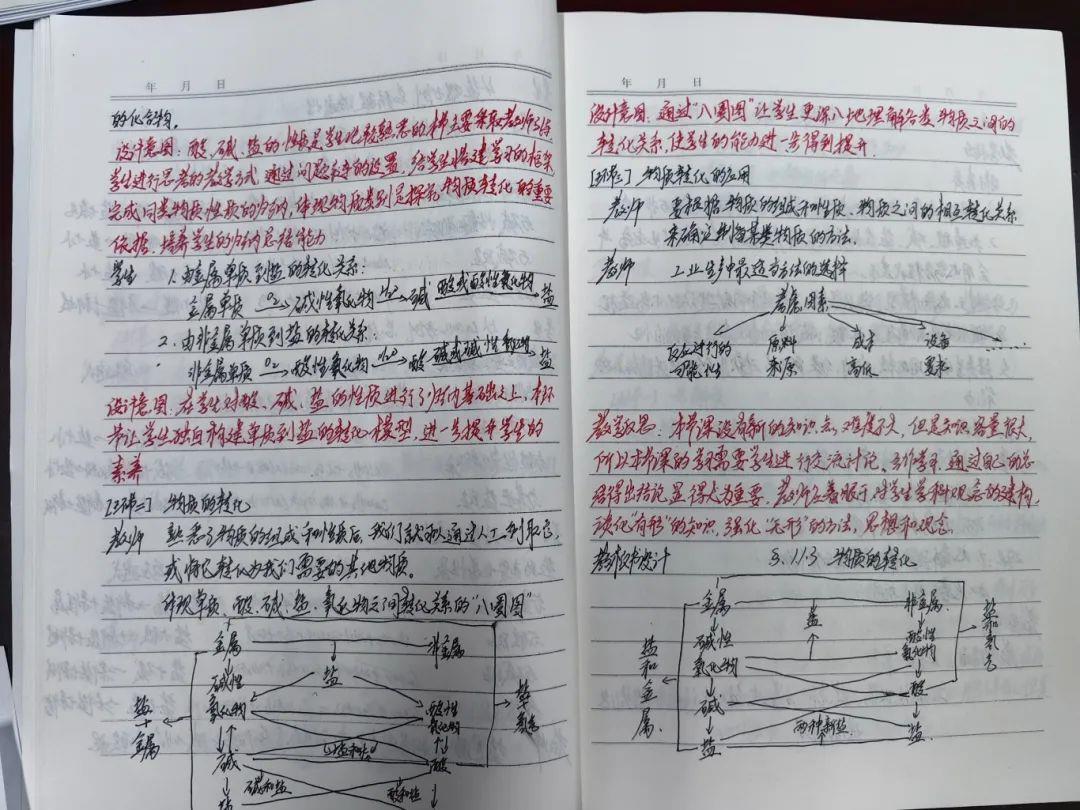 年 月 日
的化合物。
设计意图：酸、碱、盐的性质是学生比较熟悉的，本节主要采取教师引导
学生进行思考的教学方式，通过问题的设置，给学生搭建学习的框架，
完成同类物质性质的归纳，体现物质类别是探究物质转化的重要
依据，培养学生的归纳总结能力
学生 1.由金属单质到盐的转化关系：
金属单质 O₂→ 碱性氧化物 H₂O→ 碱 酸或酸性氧化物→ 盐
2.由非金属单质到盐的转化关系：
非金属单质 O₂→ 酸性氧化物 H₂O→ 酸 碱或碱性氧化物→ 盐
设计意图：在学生对酸、碱、盐的性质进行了归纳基础之上，本环
节让学生独自构建单质到盐的转化模型，进一步提升学生的
素养
[环节二] 物质的转化
教师 熟悉了物质的组成和性质后，我们就可以通过人工制取它，
或将它转化为我们需要的其他物质。
体现单质、酸、碱、盐、氧化物之间转化关系的“八圈图”
金属 非金属
盐
碱性
氧化物
酸性
氧化物
盐
+
金属
盐
+
氢气
碱 盐和水 酸
碱和盐 酸和盐
盐
年 月 日
设计意图：通过“八圈图”让学生更深入地理解各类物质之间的
转化关系，使学生的能力进一步得到提升.
[环节三] 物质转化的应用
教师 要根据物质的组成和性质、物质之间的相互转化关系
来确定制备某类物质的方法.
教师 工业生产中最适方法的选择
考虑因素
反应进行的 原料 成本 设备 ……
可能性 来源 高低 要求
教学反思：本节课没有新的知识点，难度不大，但是知识容量很大，
所以本节课的学习需要学生进行交流讨论、合作学习，通过自己的总
结得出结论显得尤为重要。教师应着眼于对学生学科观念的建构，
淡化“有形”的知识，强化“无形”的方法，思想和观念。
板书设计 §.1.1.3 物质的转化
金属 盐 非金属
碱性
氧化物
酸性
氧化物
盐
和
金
属
盐
和
氢
气
碱 酸
盐 两种新盐 盐